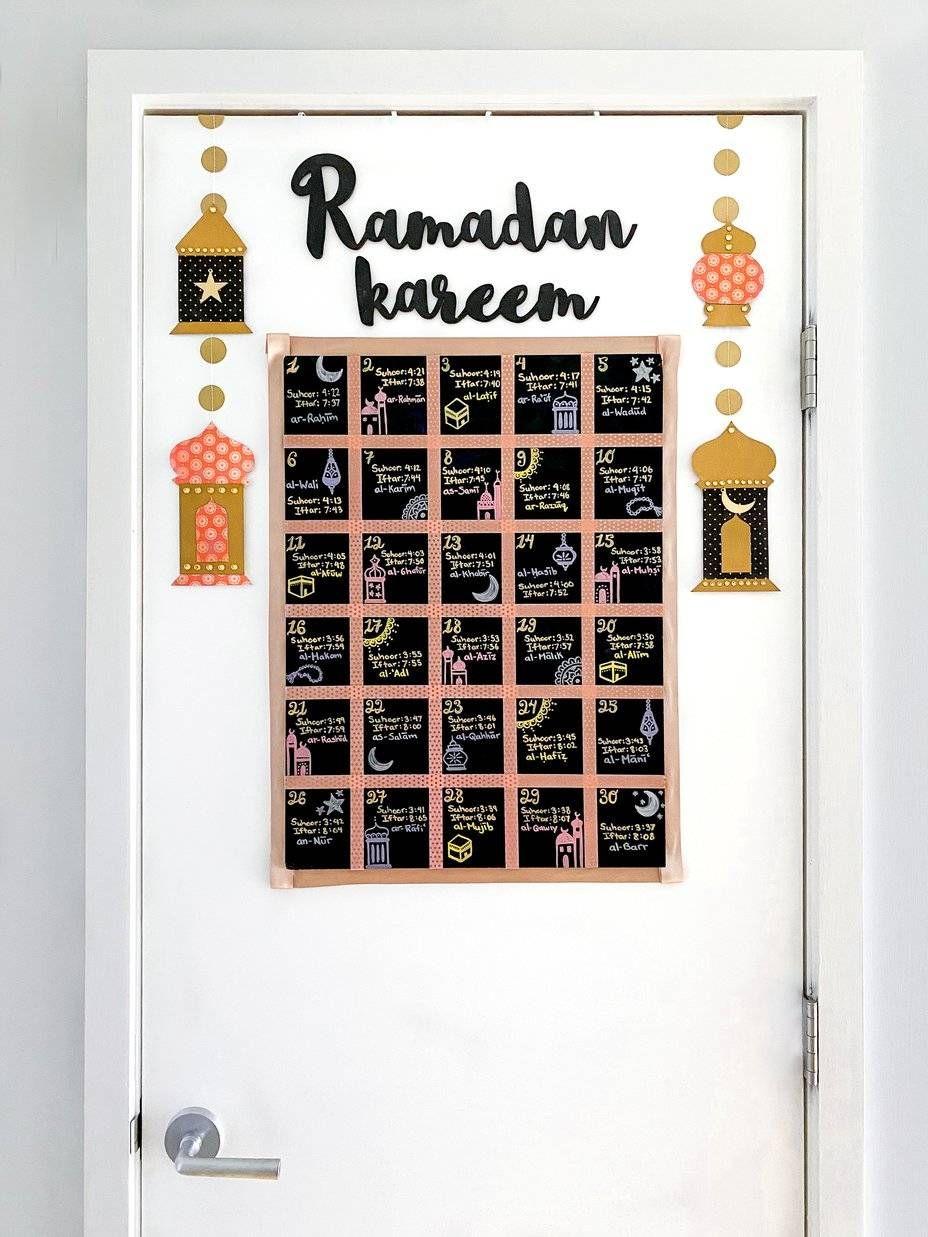 Ramadan
kareem
1
Suhoor: 4:22
Iftar: 7:37
ar-Rahīm
2
Suhoor: 4:21
Iftar: 7:38
ar-Rahmān
3
Suhoor: 4:19
Iftar: 7:40
al-Latīf
4
Suhoor: 4:17
Iftar: 7:41
ar-Ra'ūf
5
Suhoor: 4:15
Iftar: 7:42
al-Wadūd
6
al-Wali
Suhoor: 4:13
Iftar: 7:43
7
Suhoor: 4:12
Iftar: 7:44
al-Karīm
8
Suhoor: 4:10
Iftar: 7:45
as-Samī
9
Suhoor: 4:08
Iftar: 7:46
ar-Razzāq
10
Suhoor: 4:06
Iftar: 7:47
al-Muqīt
11
Suhoor: 4:05
Iftar: 7:48
al-Afūw
12
Suhoor: 4:03
Iftar: 7:50
al-Ghafūr
13
Suhoor: 4:01
Iftar: 7:51
al-Khabīr
14
al-Hasīb
Suhoor: 4:00
Iftar: 7:52
15
Suhoor: 3:58
Iftar: 7:53
al-Muhsī
16
Suhoor: 3:56
Iftar: 7:54
al-Hakam
17
Suhoor: 3:55
Iftar: 7:55
al-'Adl
18
Suhoor: 3:53
Iftar: 7:56
al-'Azīz
19
Suhoor: 3:52
Iftar: 7:57
al-Mālik
20
Suhoor: 3:50
Iftar: 7:58
al-'Alīm
21
Suhoor: 3:49
Iftar: 7:59
ar-Rashīd
22
Suhoor: 3:47
Iftar: 8:00
as-Salām
23
Suhoor: 3:46
Iftar: 8:01
al-Qahhār
24
Suhoor: 3:45
Iftar: 8:02
al-Hafīz
25
Suhoor: 3:43
Iftar: 8:03
al-Māni'
26
Suhoor: 3:42
Iftar: 8:04
an-Nūr
27
Suhoor: 3:41
Iftar: 8:05
ar-Rāfi'
28
Suhoor: 3:39
Iftar: 8:06
al-Mujīb
29
Suhoor: 3:38
Iftar: 8:07
al-Qawiy
30
Suhoor: 3:37
Iftar: 8:08
al-Barr